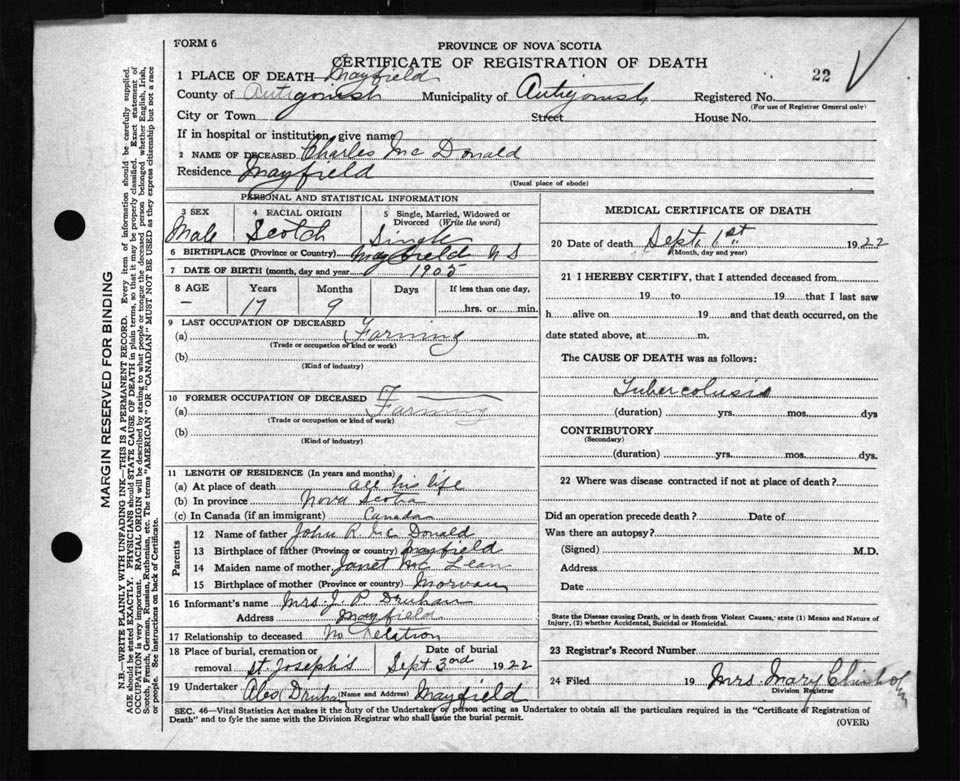 FORM 6
PROVINCE OF NOVA SCOTIA
CERTIFICATE OF REGISTRATION OF DEATH
22
1 PLACE OF DEATH Mayfield
County of Antigonish Municipality of Antigonish Registered No.
(For use of Registrar General only)
City or Town Street House No.
If in hospital or institution, give name
2 NAME OF DECEASED Charles Mc Donald
Residence Mayfield
(Usual place of abode)
PERSONAL AND STATISTICAL INFORMATION
3 SEX 4 RACIAL ORIGIN 5 Single, Married, Widowed or Divorced (Write the word)
Male Scotch Single
6 BIRTHPLACE (Province or Country) Mayfield N S
7 DATE OF BIRTH (month, day and year) 1905
8 AGE Years Months Days If less than one day,
— 17 9 hrs. or min.
9 LAST OCCUPATION OF DECEASED
(a) Farming
(Trade or occupation or kind or work)
(b)
(Kind of industry)
10 FORMER OCCUPATION OF DECEASED
(a) Farming
(Trade or occupation or kind or work)
(b)
(Kind of industry)
11 LENGTH OF RESIDENCE (In years and months)
(a) At place of death all his life
(b) In province Nova Scotia
(c) In Canada (if an immigrant) Canada
Parents
12 Name of father John R. Mc Donald
13 Birthplace of father (Province or country) Mayfield
14 Maiden name of mother Janet Mc Lean
15 Birthplace of mother (Province or country) Morvan
16 Informant's name Mrs. J. P. Druhan
Address Mayfield
17 Relationship to deceased No Relation
18 Place of burial, cremation or removal St. Joseph's Date of burial Sept 3rd 1922
19 Undertaker Alex Druhan (Name and Address) Mayfield
MEDICAL CERTIFICATE OF DEATH
20 Date of death Sept. 1st 1922
(Month, day and year)
21 I HEREBY CERTIFY, that I attended deceased from
19 to 19 that I last saw
h alive on 19 and that death occurred, on the
date stated above, at m.
The CAUSE OF DEATH was as follows:
Tubercolusis
(duration) yrs. mos. dys
CONTRIBUTORY
(Secondary)
(duration) yrs. mos. dys.
22 Where was disease contracted if not at place of death?
Did an operation precede death? Date of
Was there an autopsy?
(Signed) M.D.
Address
Date
State the Disease causing Death, or in death from Violent Causes, state (1) Means and Nature of
Injury, (2) whether Accidental, Suicidal or Homicidal.
23 Registrar's Record Number
24 Filed 19 Mrs. Mary Chisholm
Division Registrar
SEC. 46—Vital Statistics Act makes it the duty of the Undertaker or person acting as Undertaker to obtain all the particulars required in the "Certificate of Registration of
Death" and to fyle the same with the Division Registrar who shall issue the burial permit.
(OVER)
MARGIN RESERVED FOR BINDING
N.B.—WRITE PLAINLY WITH UNFADING INK—THIS IS A PERMANENT RECORD. Every item of information should be carefully supplied.
AGE should be stated EXACTLY. PHYSICIANS should STATE CAUSE OF DEATH in plain terms, so that it may be properly classified. Exact statement of
OCCUPATION is very important. RACIAL ORIGIN will be described by stating to what people or tongue the deceased person belonged whether English, Irish,
Scotch, French, German, Russian, Ruthenian, etc. The terms "AMERICAN" OR "CANADIAN" MUST NOT BE USED as they express citizenship but not a race
or people. See instructions on back of Certificate.